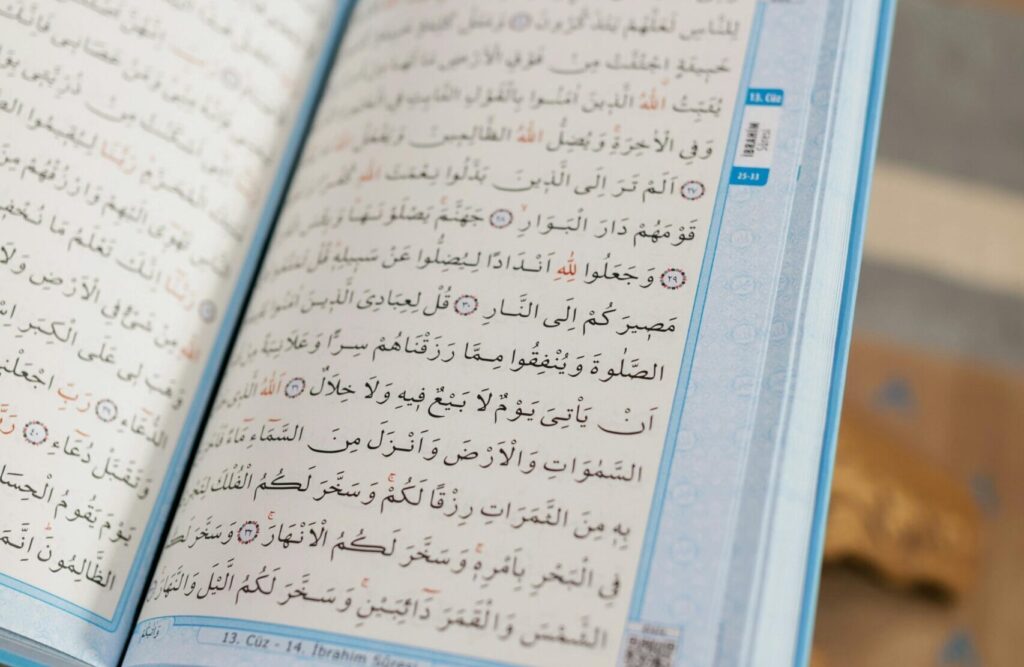 لِلنَّاسِ لَعَلَّهُمْ يَتَذَكَّرُونَ ٢٥ وَمَثَلُ كَلِمَةٍ
خَبِيثَةٍ اجْتُثَّتْ مِنْ فَوْقِ الْاَرْضِ مَا لَهَا
يُثَبِّتُ اللّٰهُ الَّذِينَ اٰمَنُوا بِالْقَوْلِ الثَّابِتِ فِي
وَفِي الْاٰخِرَةِ وَيُضِلُّ اللّٰهُ الظَّالِمِينَ وَيَفْعَلُ اللّٰهُ
٢٧ اَلَمْ تَرَ اِلَى الَّذِينَ بَدَّلُوا نِعْمَتَ اللّٰهِ كُفْرًا
قَوْمَهُمْ دَارَ الْبَوَارِ ٢٨ جَهَنَّمَ يَصْلَوْنَهَا وَبِئْسَ
٢٩ وَجَعَلُوا لِلّٰهِ اَنْدَادًا لِيُضِلُّوا عَنْ سَبِيلِهٖ قُلْ تَمَتَّعُوا
مَصِيرَكُمْ اِلَى النَّارِ ٣٠ قُلْ لِعِبَادِيَ الَّذِينَ اٰمَنُوا
الصَّلٰوةَ وَيُنْفِقُوا مِمَّا رَزَقْنَاهُمْ سِرًّا وَعَلَانِيَةً مِنْ
اَنْ يَأْتِيَ يَوْمٌ لَا بَيْعٌ فِيهِ وَلَا خِلَالٌ ٣١ اَللّٰهُ الَّذِي
السَّمٰوَاتِ وَالْاَرْضَ وَاَنْزَلَ مِنَ السَّمَاءِ مَاءً
بِهٖ مِنَ الثَّمَرَاتِ رِزْقًا لَكُمْ وَسَخَّرَ لَكُمُ الْفُلْكَ
فِي الْبَحْرِ بِاَمْرِهٖ وَسَخَّرَ لَكُمُ الْاَنْهَارَ ٣٢ وَسَخَّرَ لَكُمُ
الشَّمْسَ وَالْقَمَرَ دَائِبَيْنِ وَسَخَّرَ لَكُمُ الَّيْلَ وَالنَّهَارَ
وَاٰتٰيكُمْ
13. Cüz - 14. İbrahim Sûresi
13. Cüz
İBRAHİM
Sûresi
25-33
رَبِّ اِنَّهُنَّ
وَمَنْ عَصَانِي
مِنْ ذُرِّيَّتِي
الْمُحَرَّمِ رَبَّنَا لِيُقِيمُوا
تَهْوِي اِلَيْهِمْ وَارْزُقْهُمْ
رَبَّنَا اِنَّكَ تَعْلَمُ مَا نُخْفِي
مِنْ شَيْءٍ فِي الْاَرْضِ وَلَا
وَهَبَ لِي عَلَى الْكِبَرِ
الدُّعَاءِ ٣٩ رَبِّ اجْعَلْنِي
وَتَقَبَّلْ دُعَاءِ ٤٠
يَوْمَ يَقُومُ الْحِسَابُ
الظَّالِمُونَ اِنَّمَا